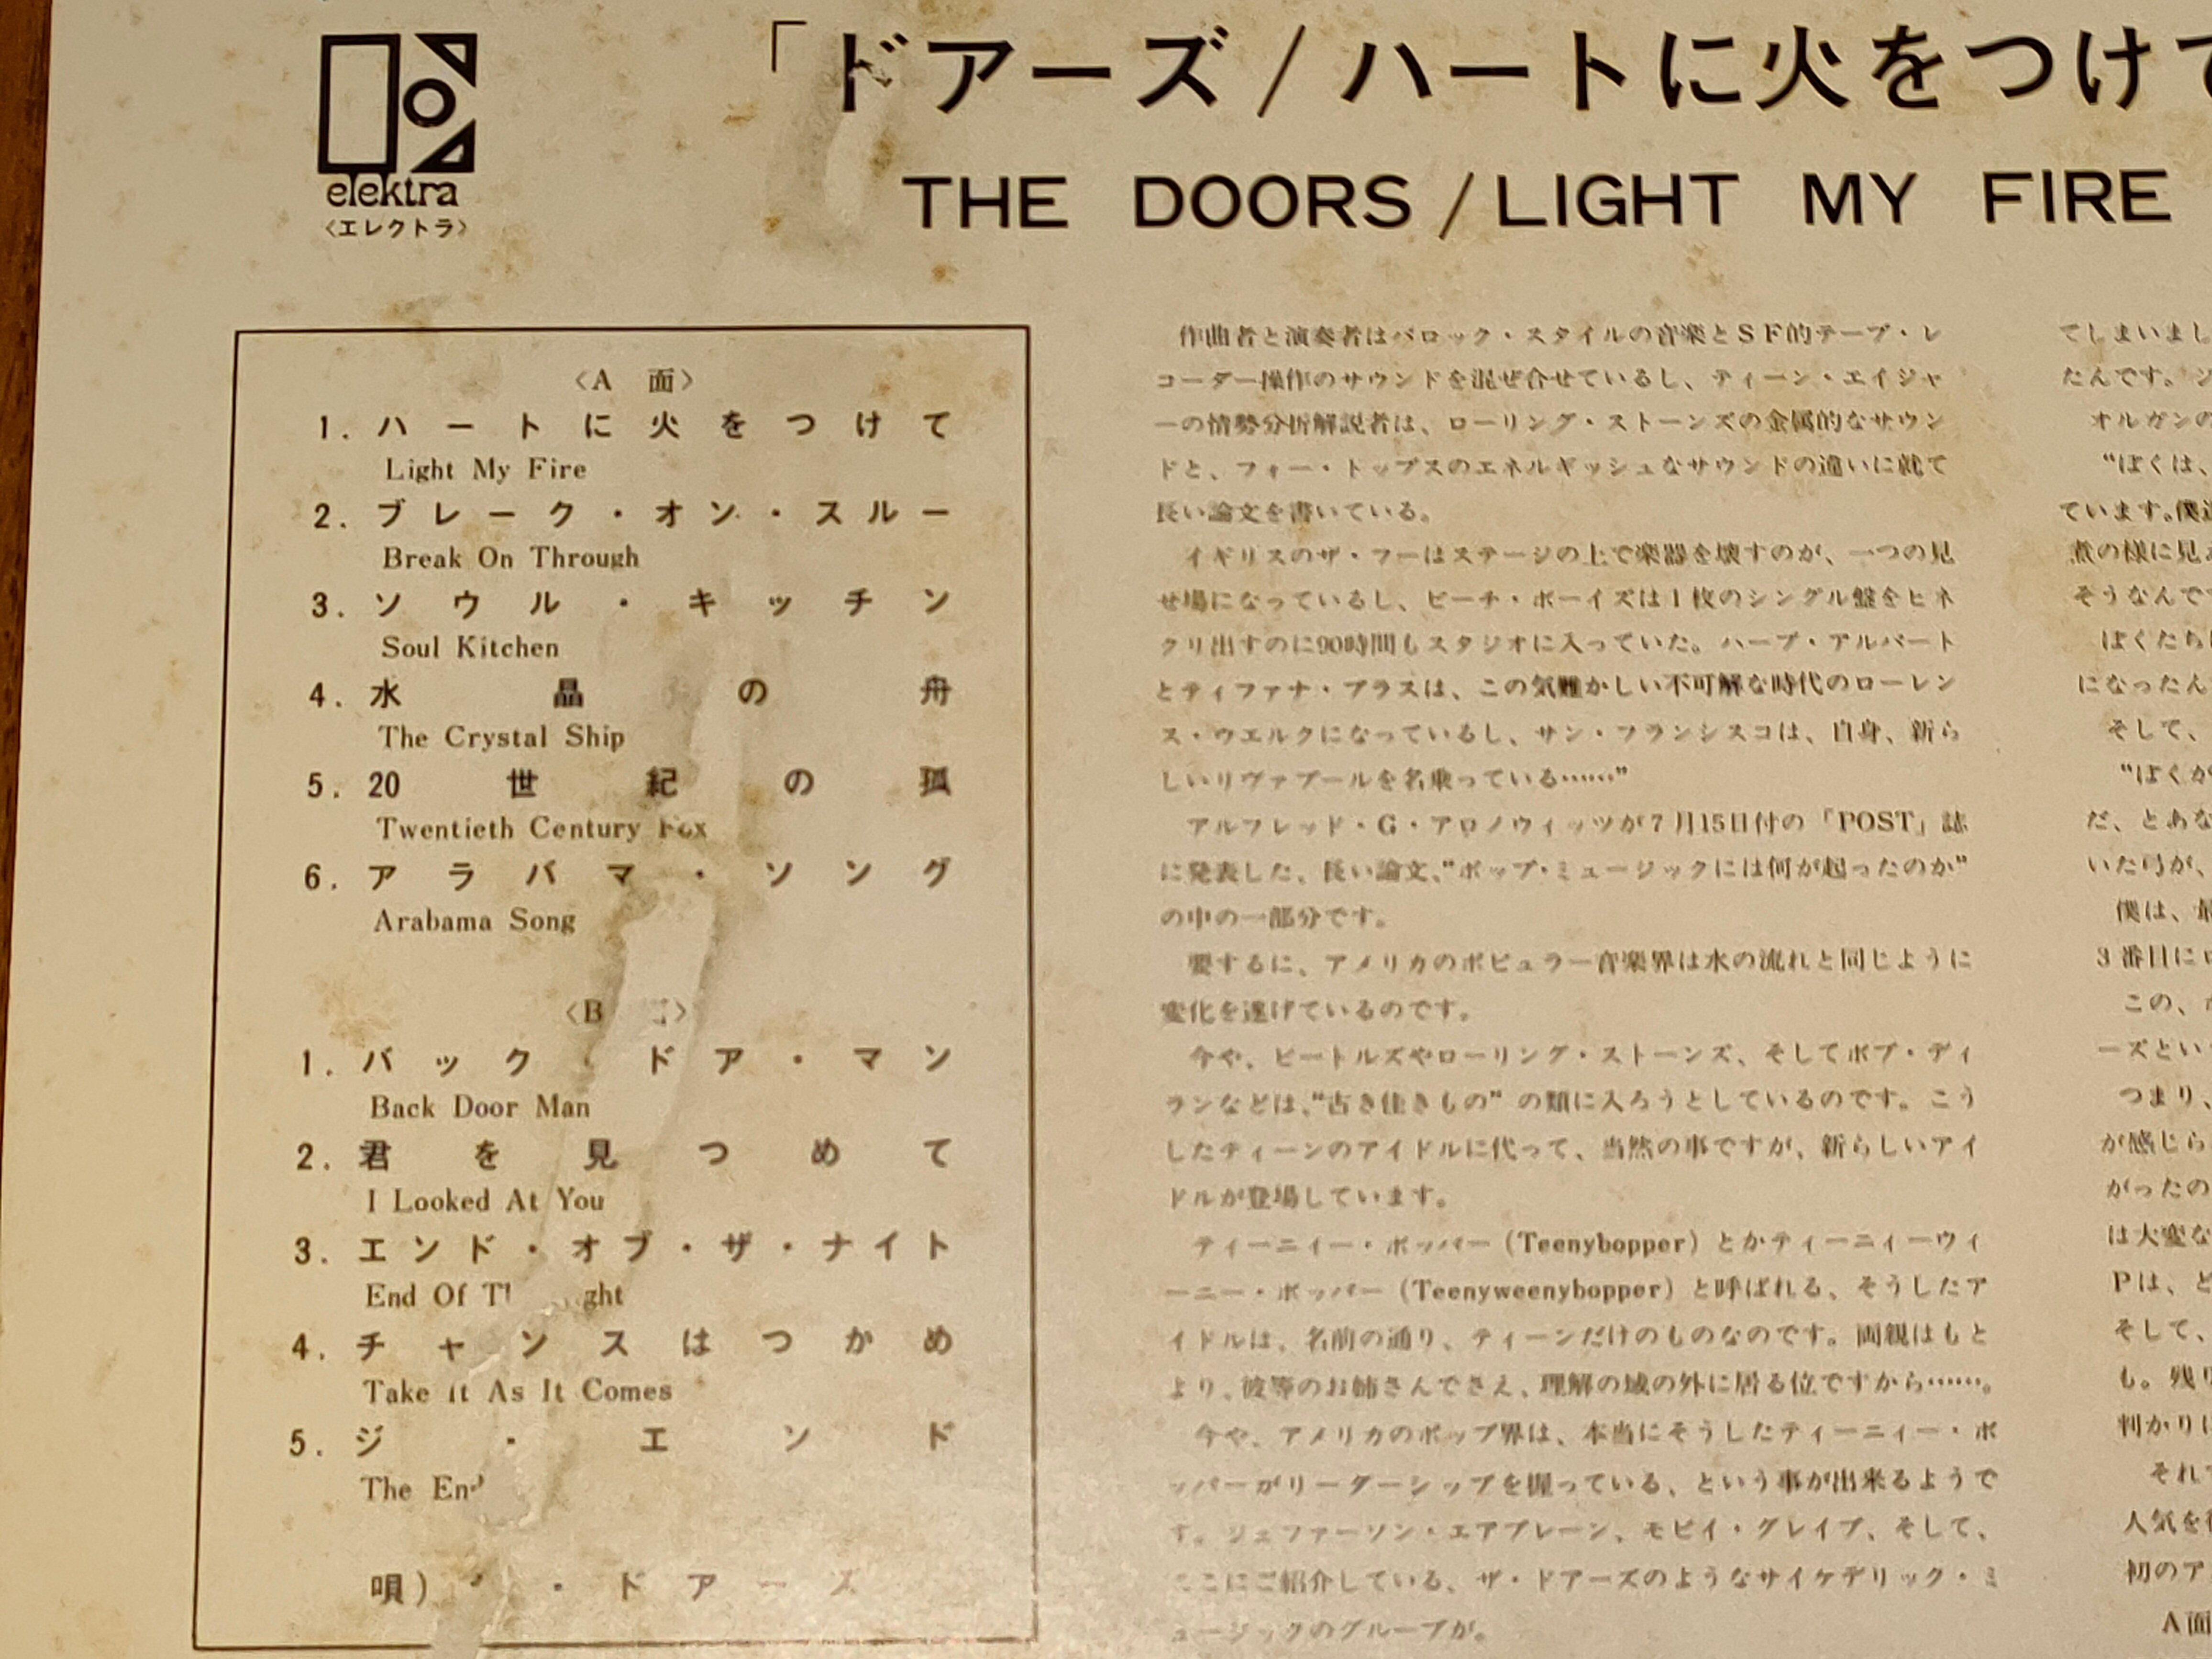 elektra
〈エレクトラ〉
「ドアーズ/ハートに火をつけて
THE DOORS/LIGHT MY FIRE
〈A 面〉
1. ハートに火をつけて
Light My Fire
2. ブレーク・オン・スルー
Break On Through
3. ソウル・キッチン
Soul Kitchen
4. 水晶の舟
The Crystal Ship
5. 20世紀の狐
Twentieth Century Fox
6. アラバマ・ソング
Arabama Song
〈B 〉
1. バック・ドア・マン
Back Door Man
2. 君を見つめて
I Looked At You
3. エンド・オブ・ザ・ナイト
End Of
4. チャンスはつかめ
Take It As It Comes
5. ジ・エンド
The End
唄) ・ドアーズ
作曲者と演奏者はバロック・スタイルの音楽とSF的テープ・レ
コーダー操作のサウンドを混ぜ合せているし、ティーン・エイジャ
ーの情勢分折解説者は、ローリング・ストーンズの金属的なサウン
ドと、フォー・トップスのエネルギッシュなサウンドの違いに就て
長い論文を書いている。
イギリスのザ・フーはステージの上で楽器を壊すのが、一つの見
せ場になっているし、ビーチ・ボーイズは1枚のシングル盤をヒネ
クリ出すのに90時間もスタジオに入っていた。ハーブ・アルバート
とティファナ・ブラスは、この気難かしい不可解な時代のローレン
ス・ウエルクになっているし、サン・フランシスコは、自身、新ら
しいリヴァプールを名乗っている……”
アルフレッド・G・アロノウィッツが7月15日付の「POST」誌
に発表した、長い論文、“ポップ・ミュージックには何が起ったのか”
の中の一部分です。
要するに、アメリカのポピュラー音楽界は水の流れと同じように
変化を遂げているのです。
今や、ビートルズやローリング・ストーンズ、そしてボブ・ディ
ランなどは、“古き佳きもの”の類に入ろうとしているのです。こう
したティーンのアイドルに代って、当然の事ですが、新らしいアイ
ドルが登場しています。
ティーニィー・ボッパー(Teenybopper)とかティーニィーウィ
ーニー・ボッパー(Teenyweenybopper)と呼ばれる、そうしたア
イドルは、名前の通り、ティーンだけのものなのです。両親はもと
より、彼等のお姉さんでさえ、理解の域の外に居る位ですから……。
今や、アメリカのポップ界は、本当にそうしたティーニィー・ボ
ッパーがリーダーシップを握っている、という事が出来るようで
す。ジェファーソン・エアプレーン、モビイ・グレイプ、そして、
ここにご紹介している、ザ・ドアーズのようなサイケデリック・ミ
ュージックのグループが。
てしまいまし
たんです。ジ
オルガンの
“ぼくは、
ています。僕
煮の様に見
そうなんで
ぼくたち
になったん
そして、
“ぼくが
だ、とあな
いた弓が、
僕は、最
3番目に
この、
ーズとい
つまり、
が感じら
がったの
は大変な
Pは、ど
そして、
も。残り
判かりに
それ
人気を
初のア
A面